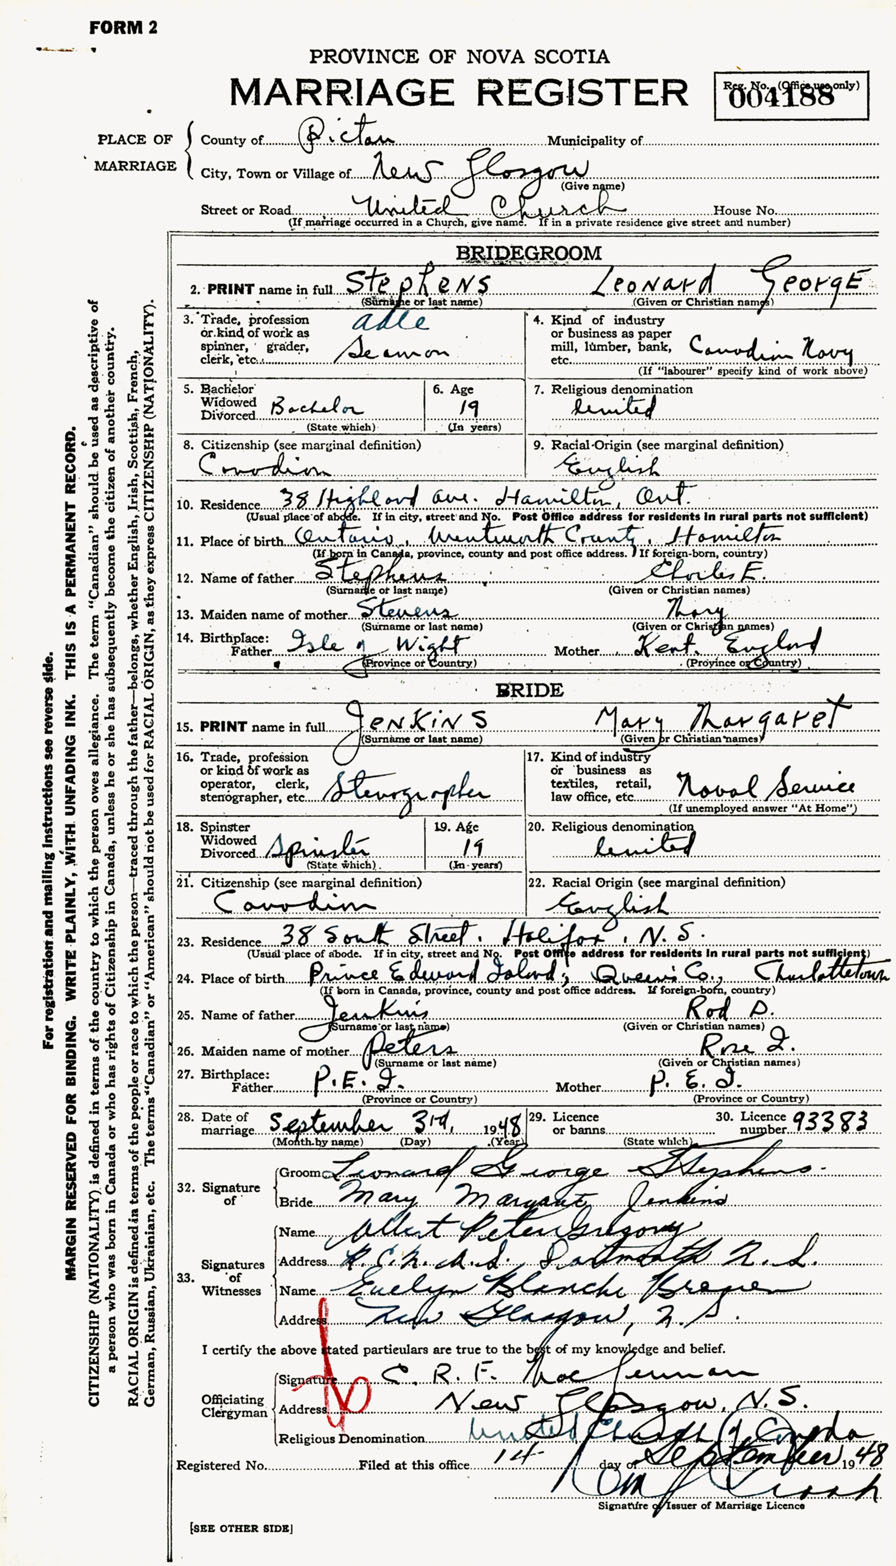 FORM 2
PROVINCE OF NOVA SCOTIA
MARRIAGE REGISTER
Reg. No. (Office use only)
004188
PLACE OF MARRIAGE
County of Pictou Municipality of
City, Town or Village of New Glasgow
(Give name)
Street or Road United Church House No.
(If marriage occurred in a Church, give name. If in a private residence give street and number)
BRIDEGROOM
2. PRINT name in full Stephens Leonard George
(Surname or last name) (Given or Christian names)
3. Trade, profession or kind of work as spinner, grader, clerk, etc. Able Seaman
4. Kind of industry or business as paper mill, lumber, bank, etc. Canadian Navy
(If "labourer" specify kind of work above)
5. Bachelor Widowed Divorced Bachelor
(State which)
6. Age 19
(In years)
7. Religious denomination
United
8. Citizenship (see marginal definition)
Canadian
9. Racial Origin (see marginal definition)
English
10. Residence 38 Highland Ave. Hamilton, Ont.
(Usual place of abode. If in city, street and No. Post Office address for residents in rural parts not sufficient)
11. Place of birth Ontario, Wentworth County, Hamilton
(If born in Canada, province, county and post office address. If foreign-born, country)
12. Name of father Stephens Charles E.
(Surname or last name) (Given or Christian names)
13. Maiden name of mother Stevens Mary
(Surname or last name) (Given or Christian names)
14. Birthplace: Father Isle of Wight Mother Kent England
(Province or Country) (Province or Country)
BRIDE
15. PRINT name in full Jenkins Mary Margaret
(Surname or last name) (Given or Christian names)
16. Trade, profession or kind of work as operator, clerk, stenographer, etc. Stenographer
17. Kind of industry or business as textiles, retail, law office, etc. Naval Service
(If unemployed answer "At Home")
18. Spinster Widowed Divorced Spinster
(State which)
19. Age 19
(In years)
20. Religious denomination
United
21. Citizenship (see marginal definition)
Canadian
22. Racial Origin (see marginal definition)
English
23. Residence 38 South Street, Halifax, N.S.
(Usual place of abode. If in city, street and No. Post Office address for residents in rural parts not sufficient)
24. Place of birth Prince Edward Island, Queen's Co., Charlottetown
(If born in Canada, province, county and post office address. If foreign-born, country)
25. Name of father Jenkins Rod D.
(Surname or last name) (Given or Christian names)
26. Maiden name of mother Peters Rose I.
(Surname or last name) (Given or Christian names)
27. Birthplace: Father P.E.I. Mother P.E.I.
(Province or Country) (Province or Country)
28. Date of marriage September 3rd, 1948
(Month by name) (Day) (Year)
29. Licence or banns
(State which)
30. Licence number 93383
32. Signature of
Groom Leonard George Stephens.
Bride Mary Margaret Jenkins
33. Signatures of Witnesses
Name Albert Peter Gregory
Address Dartmouth N.S.
Name Evelyn Blanche
Address New Glasgow, N.S.
I certify the above stated particulars are true to the best of my knowledge and belief.
Officiating Clergyman
Signature C. R. F.
Address New Glasgow, N.S.
Religious Denomination United Church of Canada
Registered No. Filed at this office 14 day of September 1948
Signature of Issuer of Marriage Licence
[SEE OTHER SIDE]
For registration and mailing instructions see reverse side.
MARGIN RESERVED FOR BINDING. WRITE PLAINLY, WITH UNFADING INK. THIS IS A PERMANENT RECORD.
CITIZENSHIP (NATIONALITY) is defined in terms of the country to which the person owes allegiance. The term "Canadian" should be used as descriptive of
a person who was born in Canada or who has rights of Citizenship in Canada, unless he or she has subsequently become the citizen of another country.
RACIAL ORIGIN is defined in terms of the people or race to which the person—traced through the father—belongs, whether English, Irish, Scottish, French,
German, Russian, Ukrainian, etc. The terms "Canadian" or "American" should not be used for RACIAL ORIGIN, as they express CITIZENSHIP (NATIONALITY).